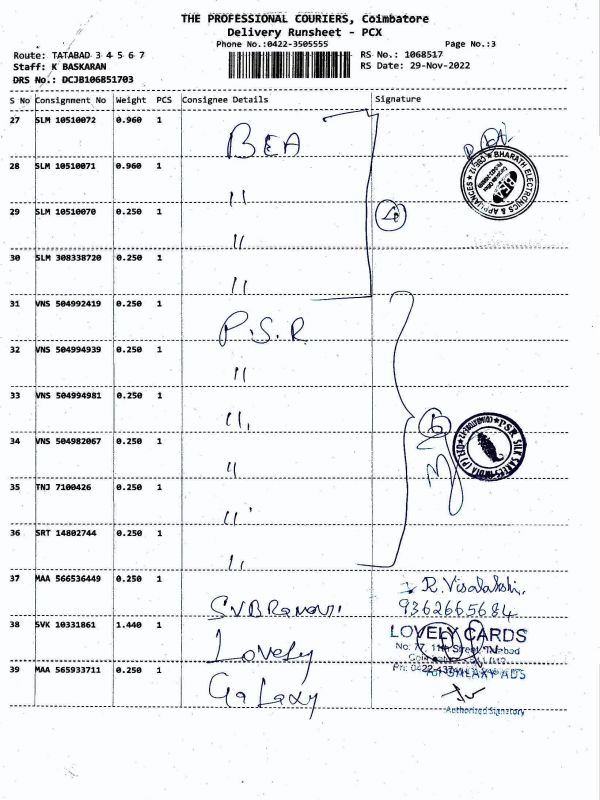 THE PROFESSIONAL COURIERS, Coimbatore
Delivery Runsheet - PCX
Phone No.:0422-3505555 Page No.:3
Route: TATABAD 3 4 5 6 7 RS No.: 1068517
Staff: K BASKARAN RS Date: 29-Nov-2022
DRS No.: DCJB106851703
S No Consignment No Weight PCS Consignee Details Signature
27 SLM 10510072 0.960 1 BEA
28 SLM 10510071 0.960 1 "
BHARATH ELECTRONICS & APPLIANCES ★ CBE-12 ★
BEA
29 SLM 10510070 0.250 1 " 4
30 SLM 308338720 0.250 1 "
31 VNS 504992419 0.250 1 P.S.R
32 VNS 504994939 0.250 1 "
33 VNS 504994981 0.250 1 " 6
P.S.R SILK SAREES INDIA (P) LTD ★ COIMBATORE-12 ★
34 VNS 504982067 0.250 1 "
35 TNJ 7100426 0.250 1 "
36 SRT 14802744 0.250 1 "
37 MAA 566536449 0.250 1 R. Visalakshi,
9362665684
38 SVK 10331861 1.440 1 Lovely LOVELY CARDS
No: 77, 11th Street, Tatabad
39 MAA 565933711 0.250 1 Galaxy For GALAXY ADS
Authorized Signatory